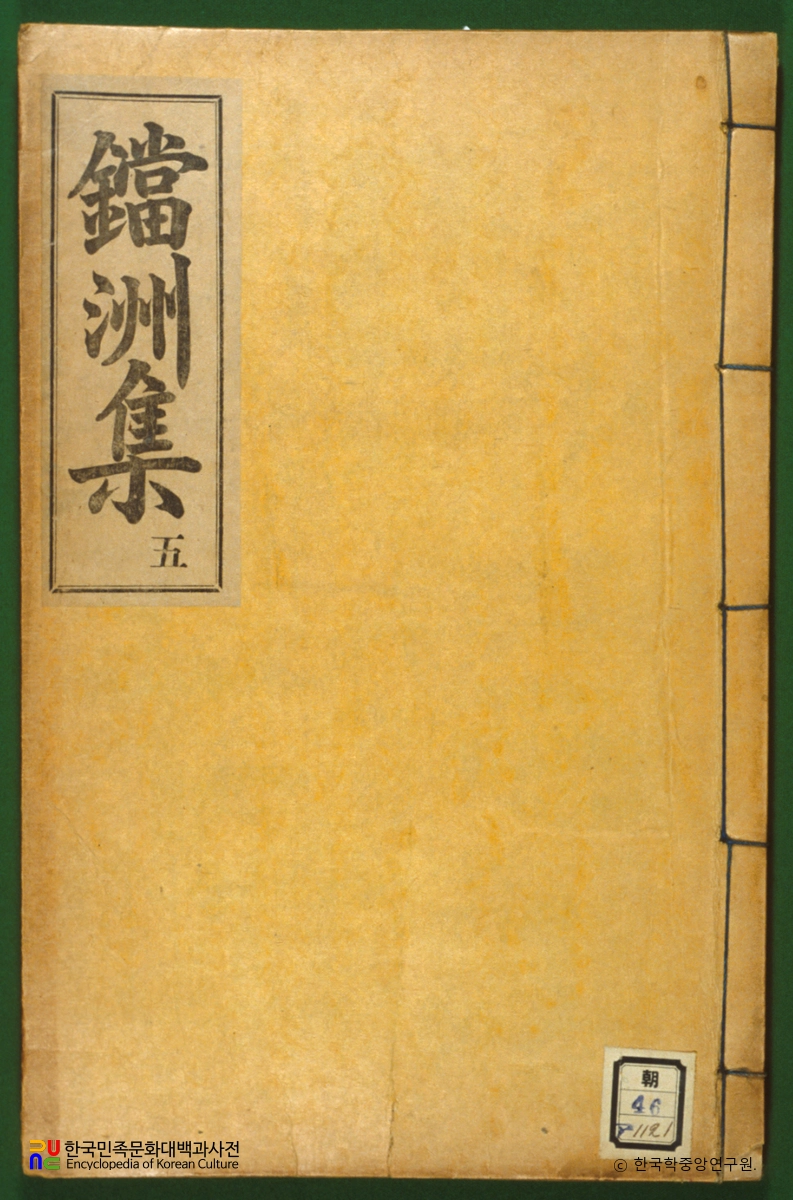 鐺洲集
五
朝
46
한국민족문화대백과사전
Encyclopedia of Korean Culture
© 한국학중앙연구원.